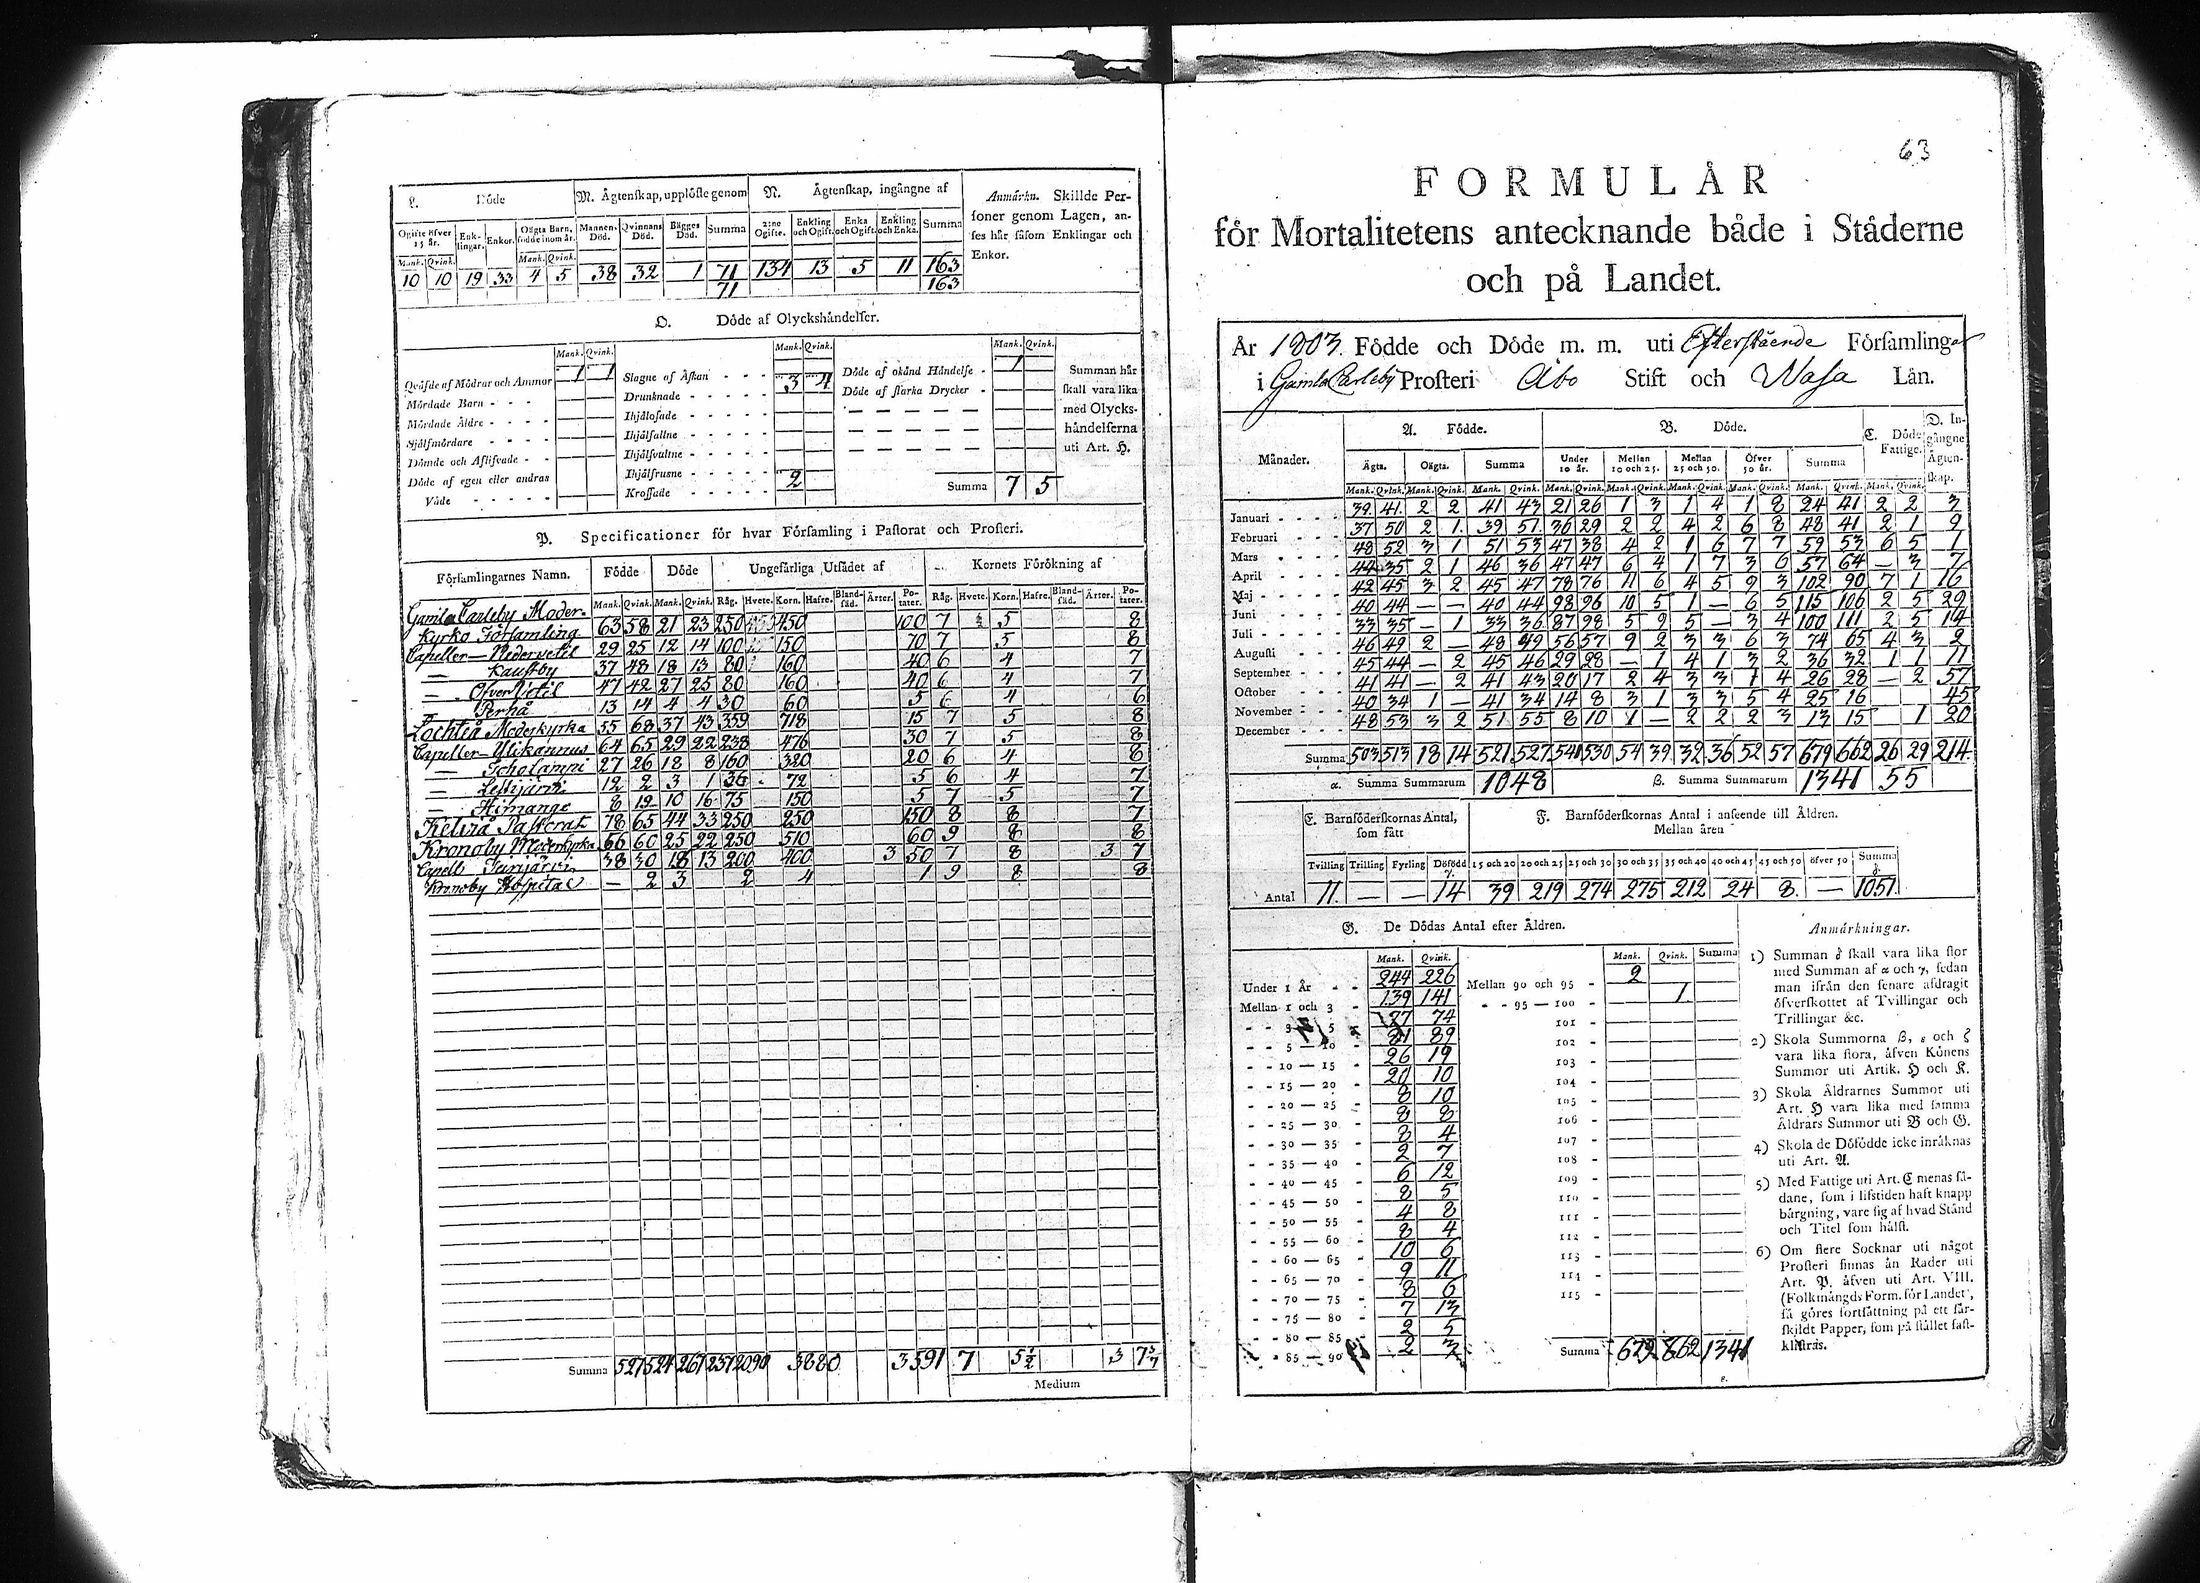 L. Döde
M. Ägtenskap, upplöste genom
N. Ägtenskap, ingångne af
Ogifte öfver 15 år. Enk-lingar. Enkor. Oägta Barn, födde inom år. Mannens Död. Qvinnans Död. Bägges Död. Summa 2:ne Ogifte. Enkling och Ogift. Enka och Ogift. Enkling och Enka. Summa
Mank. Qvink. Mank. Qvink.
10 10 19 33 4 5 38 32 1 71 134 13 5 11 163
71 163
Anmärkn. Skillde Per-
soner genom Lagen, an-
ses här såsom Enklingar och
Enkor.
O. Döde af Olyckshändelser.
Mank. Qvink. Mank. Qvink. Mank. Qvink.
Qväfde af Mödrar och Ammor 1 1
Mördade Barn
Mördade Äldre
Sjelfmördare
Dömde och Aflifvade
Döde af egen eller andras
Våde
Slagne af Åskan
Drunknade 3 4
Ihjälofade
Ihjälfallne
Ihjälfvultne
Ihjälfrusne
Krossade 2
Döde af okänd Händelse 1
Döde af starka Drycker
Summa 7 5
Summan här
skall vara lika
med Olycks-
händelserna
uti Art. H.
P. Specificationer för hvar Församling i Pastorat och Prosteri.
Församlingarnes Namn. Födde Döde Ungefärliga Utsädet af Kornets Förökning af
Mank. Qvink. Mank. Qvink. Råg. Hvete. Korn. Hafre. Bland-säd. Ärter. Po-tater. Råg. Hvete. Korn. Hafre. Bland-säd. Ärter. Po-tater.
Gamla Carleby Moder-
Kyrko Församling 63 58 21 23 250 450 100 7 5 8
Capeller — Nedervetil 29 25 12 14 100 150 70 7 5 8
— Kaustby 37 48 18 13 80 160 40 6 4 7
— Öfver Vetil 47 42 27 25 80 160 40 6 4 7
— Perho 13 14 4 4 30 60 5 6 4 6
Lochteå Moderkyrka 55 68 37 43 359 718 15 7 5 8
Capeller — Ylikannus 64 65 29 22 238 476 30 7 5 8
— Toholampi 27 26 18 8 160 320 20 6 4 8
— Lestijärvi 12 2 3 1 36 72 5 6 4 7
— Himango 8 19 10 16 75 150 5 7 5 7
Kelviå Pastorat 78 65 44 33 250 250 150 8 8 7
Kronoby Moderkyrka 56 60 25 22 250 510 60 9 8 8
Capell Terijärvi 38 30 18 13 200 400 3 50 7 8 3 7
Kronoby Hospital — 2 3 2 4 1 9 8 8
Summa 527 524 267 237 2090 3880 3 591 7 5 1/2 3 7 3/7
Medium
63
FORMULÄR
för Mortalitetens antecknande både i Städerne
och på Landet.
År 1803. Födde och Döde m. m. uti Efterstående Församlingar
i Gamla Carleby Prosteri Åbo Stift och Wasa Län.
Månader. A. Födde. B. Döde. C. Döde Fattige. D. In-gångne Ägten-skap.
Ägta. Oägta. Summa Under 10 år. Mellan 10 och 25. Mellan 25 och 50. Öfver 50 år. Summa
Mank. Qvink. Mank. Qvink. Mank. Qvink. Mank. Qvink. Mank. Qvink. Mank. Qvink. Mank. Qvink. Mank. Qvink. Mank. Qvink.
Januari 39 41 2 2 41 43 21 26 1 3 1 4 1 8 24 41 2 2 3
Februari 37 50 2 1 39 51 36 29 2 2 4 2 6 8 48 41 2 1 9
Mars 48 52 3 1 51 53 47 38 4 2 1 6 7 7 59 53 6 5 1
April 44 35 2 1 46 36 47 47 6 4 1 7 3 6 57 64 — 3 7
Maj 42 45 3 2 45 47 78 76 11 6 4 5 9 3 102 90 7 1 16
Juni 40 44 — — 40 44 98 96 10 5 1 — 6 5 115 106 2 5 29
Juli 33 35 — 1 33 36 87 98 5 9 5 — 3 4 100 111 2 5 14
Augusti 46 49 2 — 48 49 56 57 9 2 3 3 6 3 74 65 4 3 2
September 45 44 — 2 45 46 29 28 — 1 4 1 3 2 36 32 1 1 11
October 41 41 — 2 41 43 20 17 2 4 3 3 1 4 26 28 — 2 57
November 40 34 1 — 41 34 14 8 3 1 3 3 5 4 25 16 45
December 48 53 3 2 51 55 8 10 1 — 2 2 2 3 13 15 1 20
Summa 503 513 18 14 521 527 541 530 54 39 32 36 52 57 679 662 26 29 214
α. Summa Summarum 1048 β. Summa Summarum 1341 55
E. Barnföderskornas Antal,
som fått
F. Barnföderskornas Antal i anseende till Åldren.
Mellan åren
Tvilling Trilling Fyrling Dödfödd γ. 15 och 20 20 och 25 25 och 30 30 och 35 35 och 40 40 och 45 45 och 50 öfver 50 Summa δ.
Antal 11 — — 14 39 219 274 275 212 24 8 — 1051
G. De Dödas Antal efter Åldren.
Mank. Qvink. Mank. Qvink. Summa
Under 1 År 244 226
Mellan 1 och 3 139 141
3 — 5 77 74
5 — 10 81 89
10 — 15 26 19
15 — 20 20 10
20 — 25 8 10
25 — 30 8 8
30 — 35 8 4
35 — 40 2 7
40 — 45 6 12
45 — 50 8 5
50 — 55 4 8
55 — 60 8 4
60 — 65 10 6
65 — 70 9 11
70 — 75 8 6
75 — 80 7 13
80 — 85 2 5
85 — 90 2 3
Mellan 90 och 95 2
95 — 100 1
101
102
103
104
105
106
107
108
109
110
111
112
113
114
115
Summa 679 662 1341
ε.
Anmärkningar.
1) Summan δ skall vara lika stor
med Summan af α och γ, sedan
man ifrån den senare afdragit
öfverskottet af Tvillingar och
Trillingar &c.
2) Skola Summorna β, ε och ζ
vara lika stora, äfven Könens
Summor uti Artik. H och K.
3) Skola Åldrarnes Summor uti
Art. H vara lika med samma
Åldrars Summor uti B och G.
4) Skola de Dödfödde icke inräknas
uti Art. A.
5) Med Fattige uti Art. C menas så-
dane, som i lifstiden haft knapp
bärgning, vare sig af hvad Stånd
och Titel som hälst.
6) Om flere Socknar uti något
Prosteri finnas än Rader uti
Art. P. äfven uti Art. VIII.
(Folkmängds Form. för Landet),
så göres fortsättning på ett sär-
skildt Papper, som på stället fast-
klistras.